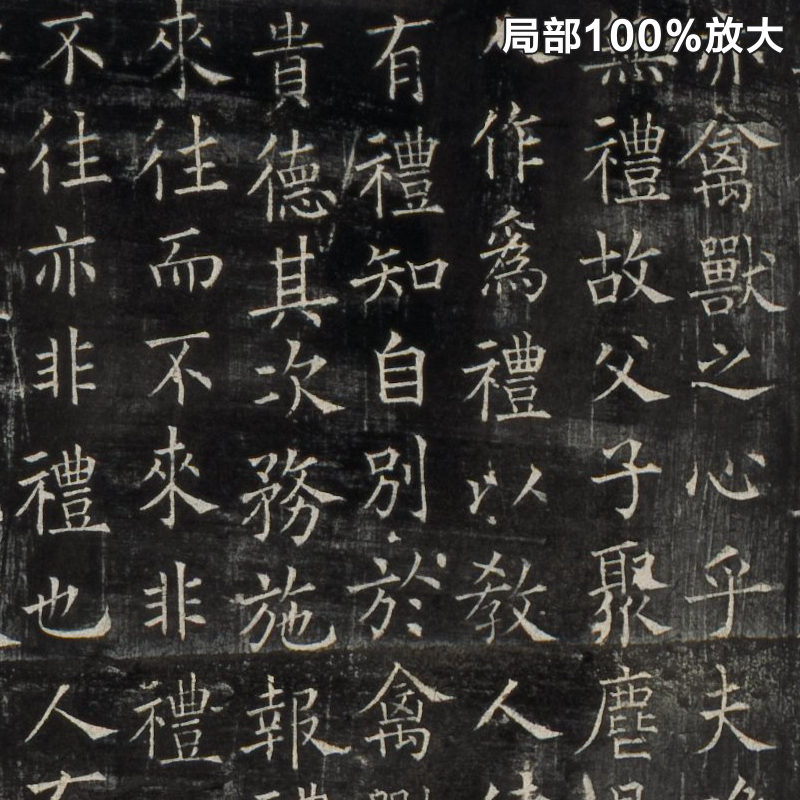 局部100%放大
亦禽獸之心乎夫
無禮故父子聚麀
作為禮以教人
有禮知自别於禽
貴德其次務施報
來往而不來非禮
不往亦非禮也人